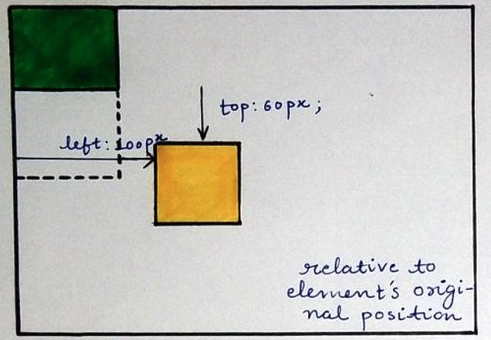 top: 60px;
left: 100px
relative to
element's origi-
nal position